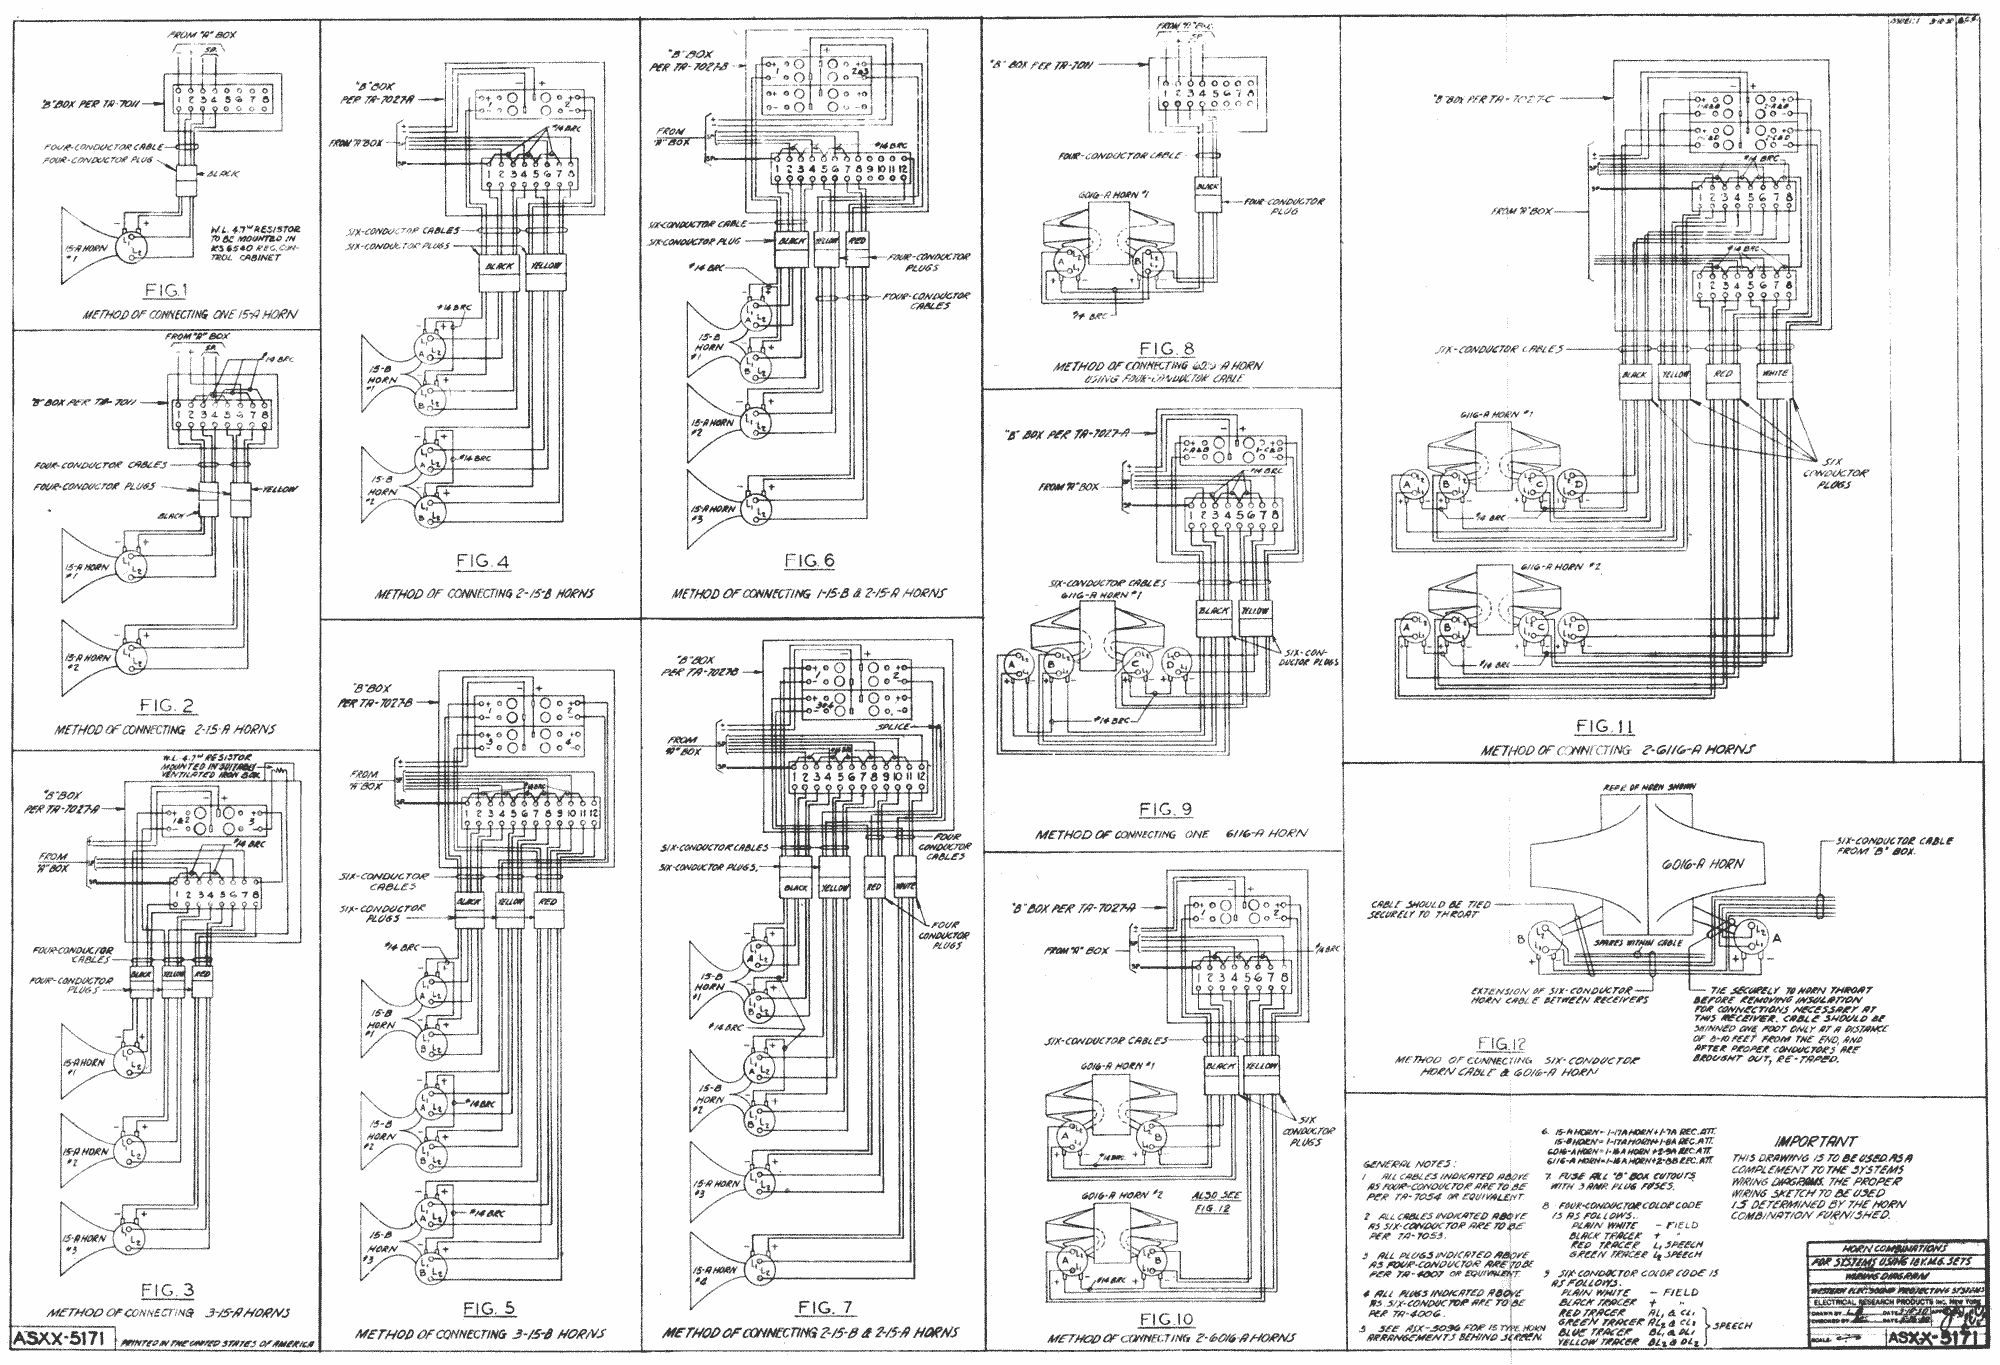 FROM "A" BOX
SP.
"B" BOX PER TA-7011
1 2 3 4 5 6 7 8
FOUR-CONDUCTOR CABLE
FOUR-CONDUCTOR PLUG
BLACK
15-A HORN
#1
W.L. 4.7ʷ RESISTOR
TO BE MOUNTED IN
KS6540 REG. CON-
TROL CABINET
FIG. 1
METHOD OF CONNECTING ONE 15-A HORN
FROM "A" BOX
SP.
#14 BRC
"B" BOX PER TA-7011
1 2 3 4 5 6 7 8
FOUR-CONDUCTOR CABLES
FOUR-CONDUCTOR PLUGS
YELLOW
BLACK
15-A HORN
#1
15-A HORN
#2
FIG. 2
METHOD OF CONNECTING 2-15-A HORNS
W.L. 4.7ʷ RESISTOR
MOUNTED IN SUITABLE
VENTILATED IRON BOX
"B" BOX
PER TA-7027-A
1&2 3
#14 BRC
FROM
"A" BOX
SP
1 2 3 4 5 6 7 8
FOUR-CONDUCTOR
CABLES
FOUR-CONDUCTOR
PLUGS
BLACK YELLOW RED
15-A HORN
#1
15-A HORN
#2
15-A HORN
#3
FIG. 3
METHOD OF CONNECTING 3-15-A HORNS
ASXX-5171
PRINTED IN THE UNITED STATES OF AMERICA
"B" BOX
PER TA-7027-A
1 2
#14 BRC
FROM "A" BOX
SP
1 2 3 4 5 6 7 8
SIX-CONDUCTOR CABLES
SIX-CONDUCTOR PLUGS
BLACK YELLOW
#14 BRC
15-B
HORN
#1
#14 BRC
15-B
HORN
#2
FIG. 4
METHOD OF CONNECTING 2-15-B HORNS
"B" BOX
PER TA-7027-B
1 2
3 4
FROM
"A" BOX
SP
#14 BRC
1 2 3 4 5 6 7 8 9 10 11 12
SIX-CONDUCTOR
CABLES
SIX-CONDUCTOR
PLUGS
BLACK YELLOW RED
#14 BRC
15-B
HORN
#1
#14 BRC
15-B
HORN
#2
#14 BRC
15-B
HORN
#3
FIG. 5
METHOD OF CONNECTING 3-15-B HORNS
"B" BOX
PER TA-7027-B
1 2&3
FROM
"A" BOX
SP
#14 BRC
1 2 3 4 5 6 7 8 9 10 11 12
SIX-CONDUCTOR CABLE
SIX-CONDUCTOR PLUG
BLACK YELLOW RED
FOUR-CONDUCTOR
PLUGS
#14 BRC
FOUR-CONDUCTOR
CABLES
15-B
HORN
#1
15-A HORN
#2
15-A HORN
#3
FIG. 6
METHOD OF CONNECTING 1-15-B & 2-15-A HORNS
"B" BOX
PER TA-7027B
1 2
3&4
SPLICE
FROM
"A" BOX
SP
#14 BRC
1 2 3 4 5 6 7 8 9 10 11 12
SIX-CONDUCTOR CABLES
FOUR
CONDUCTOR
CABLES
SIX-CONDUCTOR PLUGS,
BLACK YELLOW RED WHITE
FOUR
CONDUCTOR
PLUGS
15-B
HORN
#1
#14 BRC
15-B
HORN
#2
15-A HORN
#3
15-A HORN
#4
FIG. 7
METHOD OF CONNECTING 2-15-B & 2-15-A HORNS
FROM "A" BOX
SP.
"B" BOX PER TA-7011
1 2 3 4 5 6 7 8
FOUR-CONDUCTOR CABLE
BLACK
FOUR-CONDUCTOR
PLUG
6016-A HORN #1
A B
#14 BRC
FIG. 8
METHOD OF CONNECTING 6016-A HORN
USING FOUR-CONDUCTOR CABLE
"B" BOX PER TA-7027-A
1-A&B 1-C&D
#14 BRC
FROM "A" BOX
SP
1 2 3 4 5 6 7 8
SIX-CONDUCTOR CABLES
6116-A HORN #1
BLACK YELLOW
SIX-CON-
DUCTOR PLUGS
A B C D
#14 BRC
FIG. 9
METHOD OF CONNECTING ONE 6116-A HORN
"B" BOX PER TA-7027-A
1 2
FROM "A" BOX
#14 BRC
SP
1 2 3 4 5 6 7 8
SIX-CONDUCTOR CABLES
6016-A HORN #1
BLACK YELLOW
A B
#14 BRC
SIX
CONDUCTOR
PLUGS
6016-A HORN #2
ALSO SEE
FIG. 12
A B
#14 BRC
FIG. 10
METHOD OF CONNECTING 2-6016-A HORNS
"B" BOX PER TA-7027-C
1-A&B 1-C&D
2-A&B 2-C&D
#14 BRC
SP
1 2 3 4 5 6 7 8
FROM "A" BOX
#14 BRC
1 2 3 4 5 6 7 8
SIX-CONDUCTOR CABLES
BLACK YELLOW RED WHITE
6116-A HORN #1
SIX
CONDUCTOR
PLUGS
A B C D
#14 BRC
6116-A HORN #2
A B C D
#14 BRC
FIG. 11
METHOD OF CONNECTING 2-6116-A HORNS
REAR OF HORN SHOWN
SIX-CONDUCTOR CABLE
FROM "B" BOX.
6016-A HORN
CABLE SHOULD BE TIED
SECURELY TO THROAT
B A
SPARES WITHIN CABLE
EXTENSION OF SIX-CONDUCTOR
HORN CABLE BETWEEN RECEIVERS
TIE SECURELY TO HORN THROAT
BEFORE REMOVING INSULATION
FOR CONNECTIONS NECESSARY AT
THIS RECEIVER. CABLE SHOULD BE
SKINNED ONE FOOT ONLY AT A DISTANCE
OF 8-10 FEET FROM THE END, AND
AFTER PROPER CONDUCTORS ARE
BROUGHT OUT, RE-TAPED.
FIG. 12
METHOD OF CONNECTING SIX-CONDUCTOR
HORN CABLE & 6016-A HORN
GENERAL NOTES:
1 ALL CABLES INDICATED ABOVE
AS FOUR-CONDUCTOR ARE TO BE
PER TA-7054 OR EQUIVALENT.
2 ALL CABLES INDICATED ABOVE
AS SIX-CONDUCTOR ARE TO BE
PER TA-7053.
3 ALL PLUGS INDICATED ABOVE
AS FOUR-CONDUCTOR ARE TO BE
PER TA-4007 OR EQUIVALENT.
4 ALL PLUGS INDICATED ABOVE
AS SIX-CONDUCTOR ARE TO BE
PER TA-4006.
5 SEE ASX-5096 FOR 15 TYPE HORN
ARRANGEMENTS BEHIND SCREEN.
6. 15-A HORN = 1-17A HORN + 1-7A REC. ATT.
15-B HORN = 1-17A HORN + 1-8A REC. ATT.
6016-A HORN = 1-16A HORN + 2-9A REC. ATT.
6116-A HORN = 1-16A HORN + 2-8B REC. ATT.
7. FUSE ALL "B" BOX CUTOUTS
WITH 3 AMP. PLUG FUSES.
8 FOUR-CONDUCTOR COLOR CODE
IS AS FOLLOWS..
PLAIN WHITE - FIELD
BLACK TRACER + "
RED TRACER L₁ SPEECH
GREEN TRACER L₂ SPEECH
9 SIX-CONDUCTOR COLOR CODE IS
AS FOLLOWS.
PLAIN WHITE - FIELD
BLACK TRACER + "
RED TRACER AL₁ & CL₁
GREEN TRACER AL₂ & CL₂
BLUE TRACER BL₁ & DL₁
YELLOW TRACER BL₂ & DL₂
SPEECH
IMPORTANT
THIS DRAWING IS TO BE USED AS A
COMPLEMENT TO THE SYSTEMS
WIRING DIAGRAMS. THE PROPER
WIRING SKETCH TO BE USED
IS DETERMINED BY THE HORN
COMBINATION FURNISHED.
HORN COMBINATIONS
FOR SYSTEMS USING 18 V.M.G. SETS
WIRING DIAGRAM
WESTERN ELECTRIC SOUND PROJECTING SYSTEMS
ELECTRICAL RESEARCH PRODUCTS INC. NEW YORK
DRAWN BY
CHECKED BY
DATE
SCALE
ASXX-5171